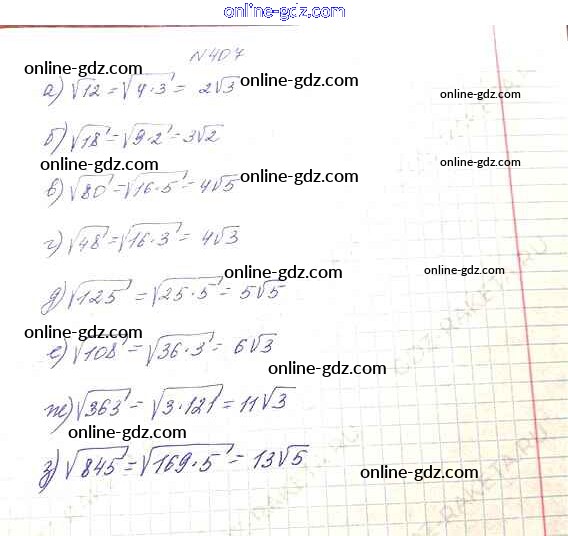 online-gdz.com
N 407
online-gdz.com
а) √12 = √4·3 = 2√3
online-gdz.com
online-gdz.com
б) √18 = √9·2 = 3√2
online-gdz.com
online-gdz.com
online-gdz.com
в) √80 = √16·5 = 4√5
г) √48 = √16·3 = 4√3
online-gdz.com
online-gdz.com
д) √125 = √25·5 = 5√5
online-gdz.com
е) √108 = √36·3 = 6√3
online-gdz.com
ж) √363 = √3·121 = 11√3
online-gdz.com
з) √845 = √169·5 = 13√5
online-gdz.com